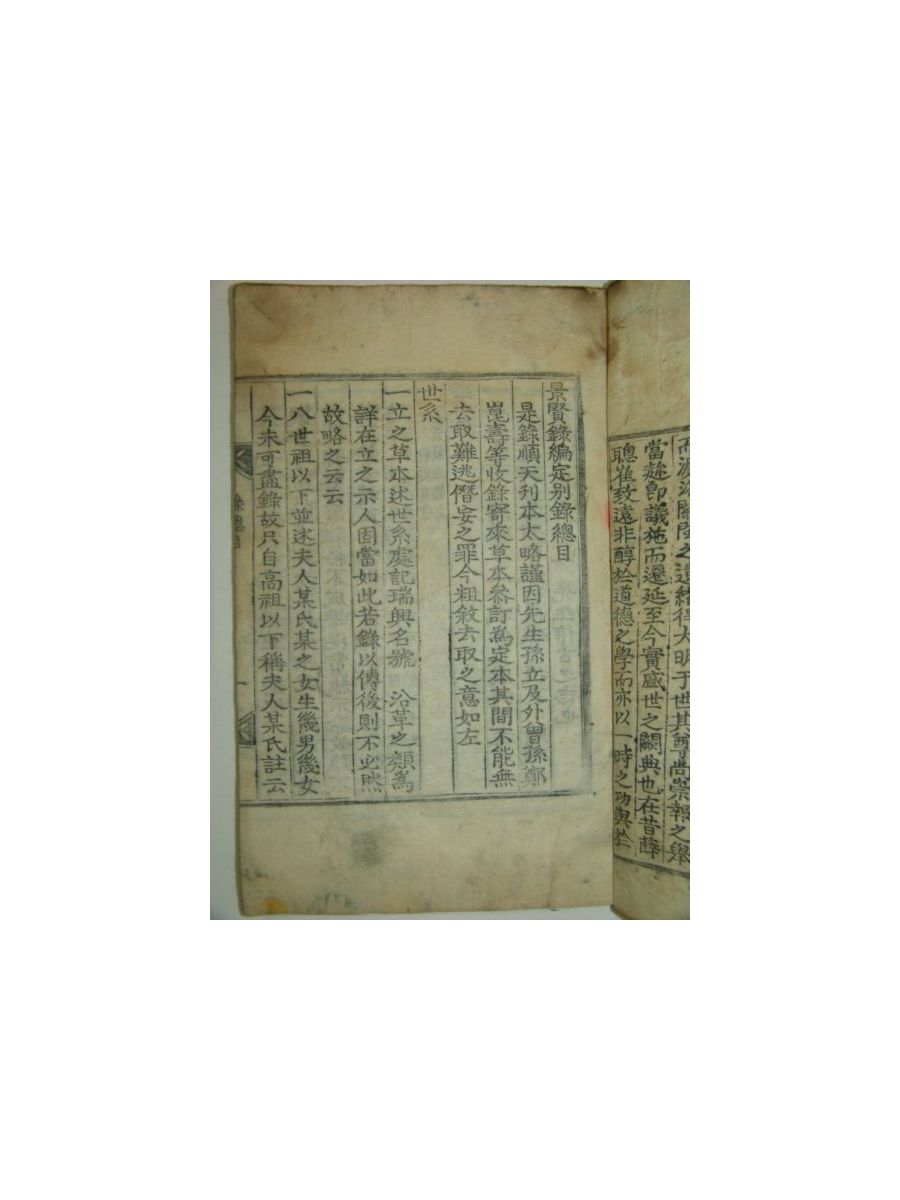 而源洛關閩之遺緖得大明于世其尊尙崇報之擧
當趂卽議施而遷延至今實盛世之闕典也在昔薛
聰崔致遠非醇於道德之學而亦以一時之功與於
景賢錄編定別錄總目
是錄順天刊本太略謹因先生孫立及外曾孫鄭
崑壽等收錄寄來草本叅訂爲定本其間不能無
去取難逃僭妄之罪今粗敘去取之意如左
世系
一立之草本述世系處記瑞興名號 沿革之類爲
詳在立之示人固當如此若錄以傳後則不必然
故略之云云
一八世祖以下並述夫人某氏某之女生幾男幾女
今未可盡錄故只自高祖以下稱夫人某氏註云